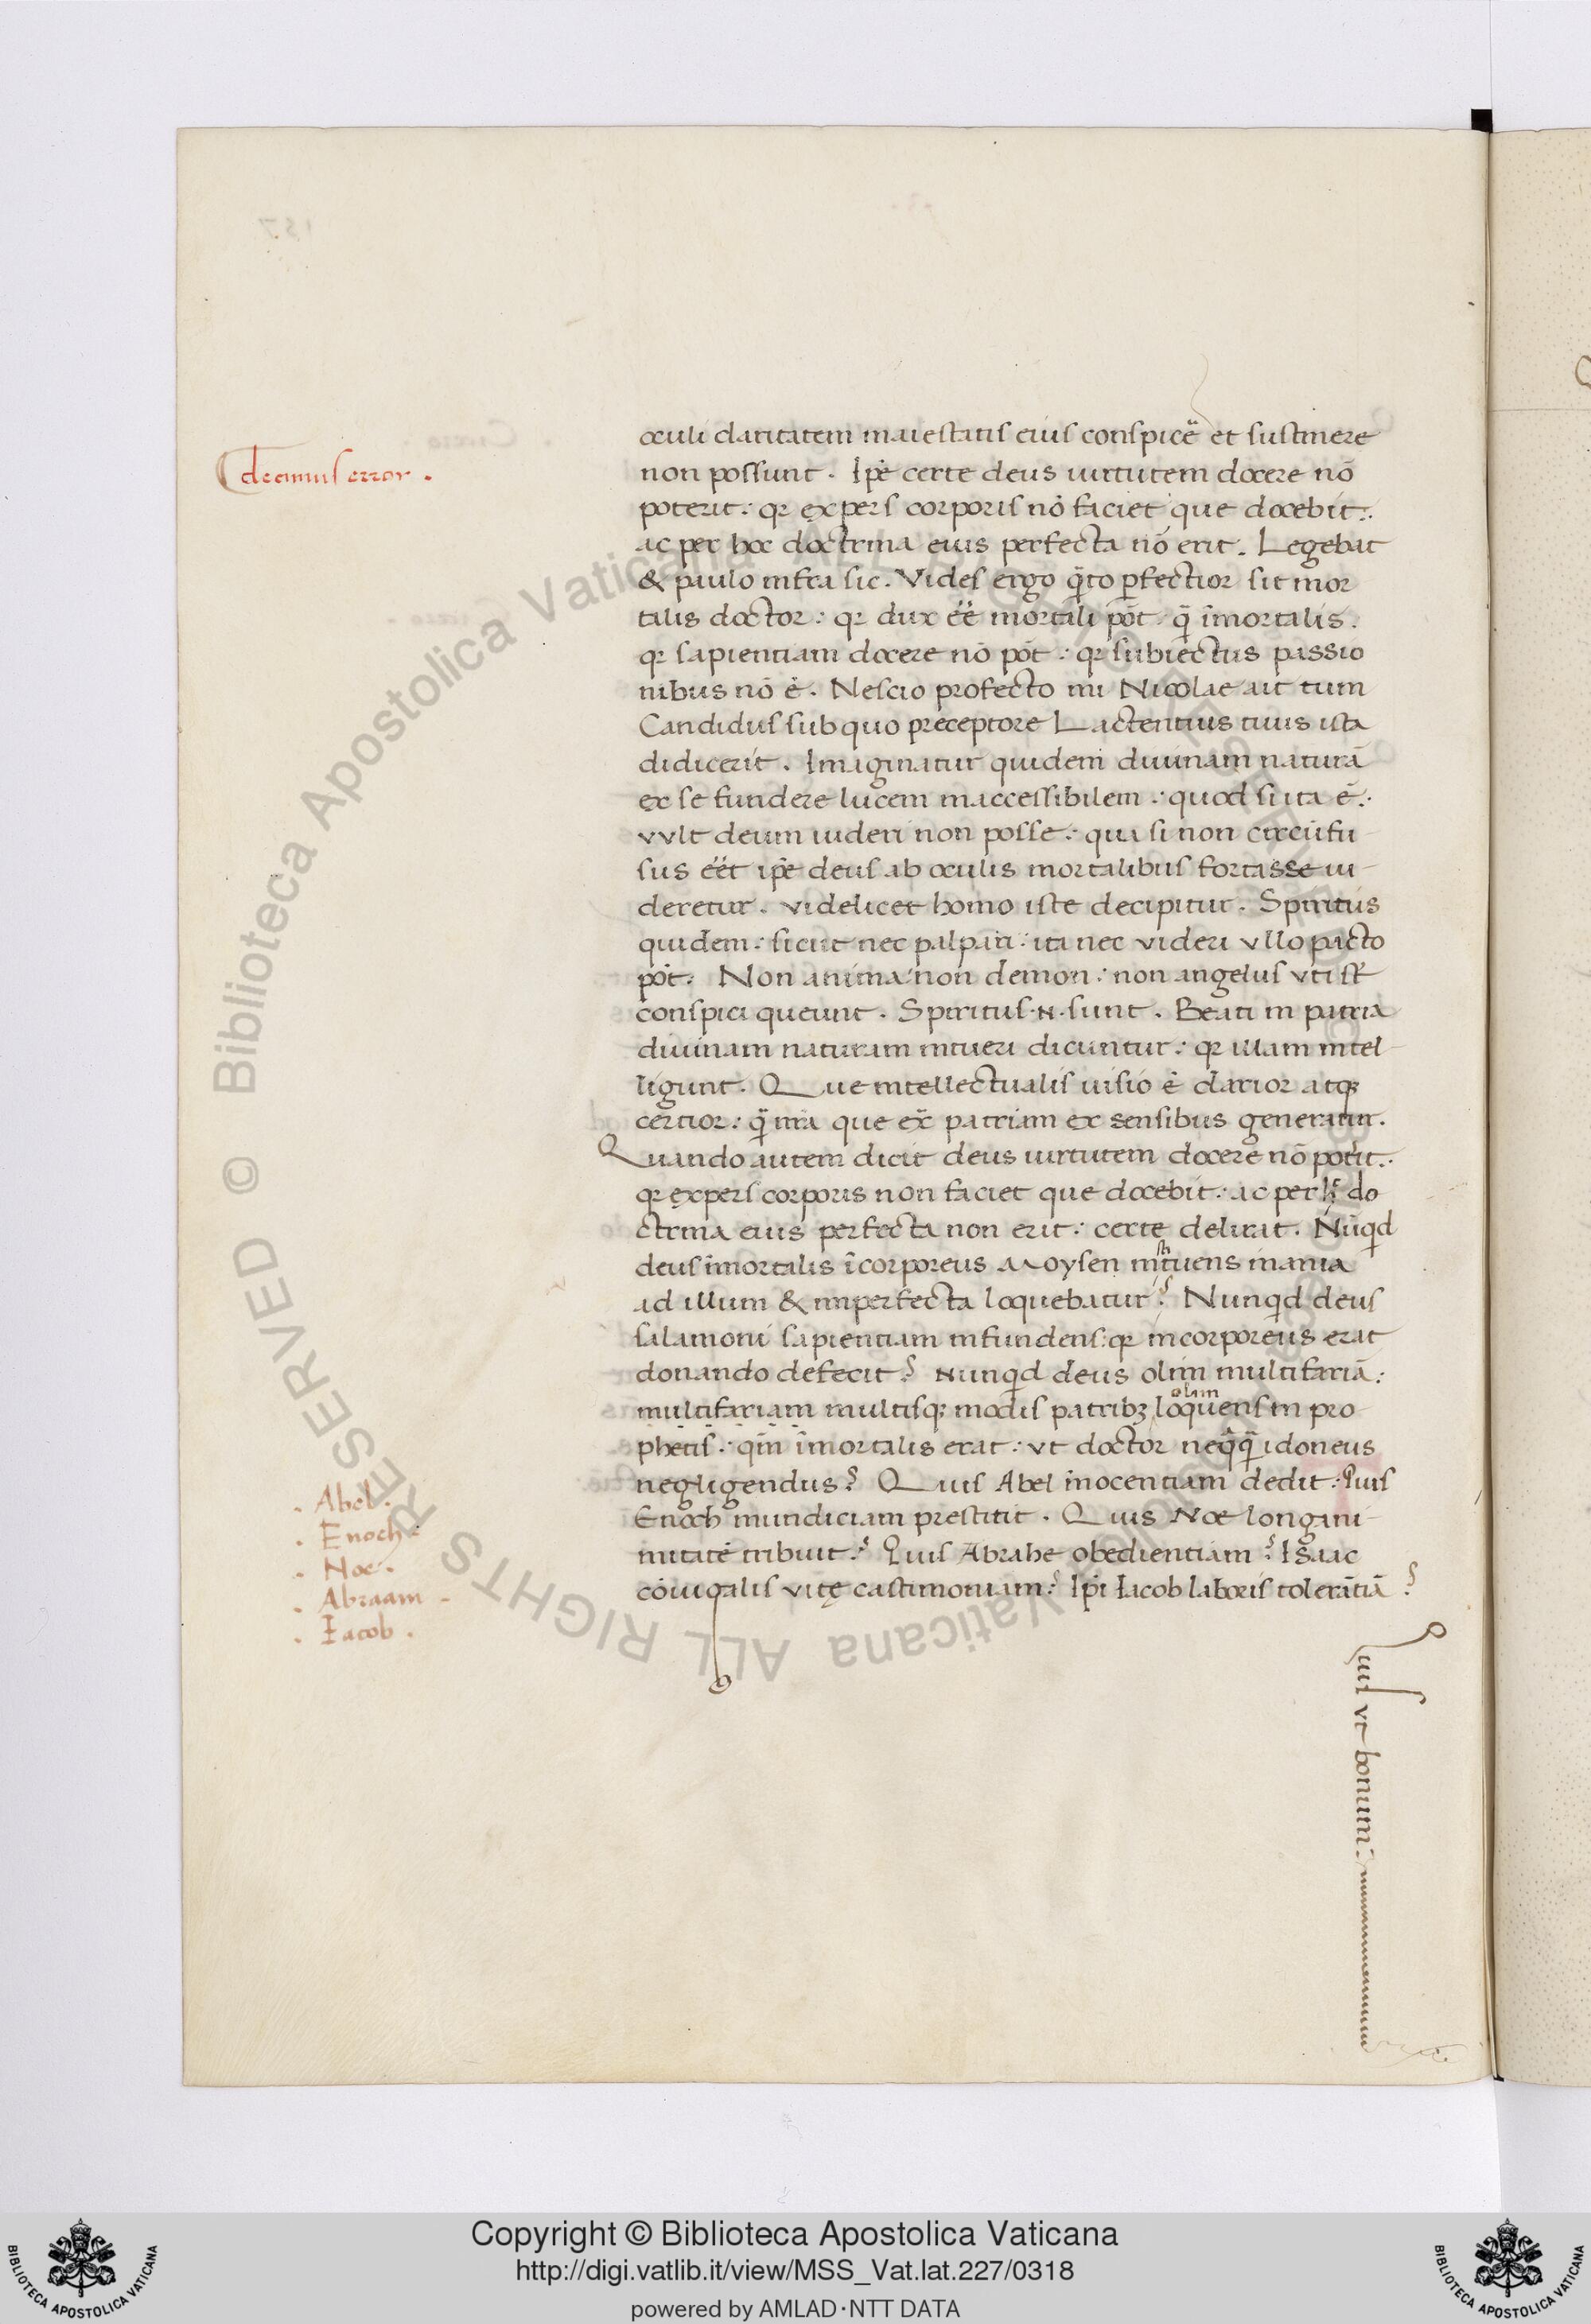 decimus error .
oculi claritatem maiestatis eius conspicẽ et sustinere
non possunt . Ip̃e certe deus uirtutem docere nõ
poterit : qr expers corporis nõ faciet que docebit :
ac per hoc doctrina eius perfecta nõ erit . Legebat
& paulo infra sic . Vides ergo q̃to ꝑfectior sit mor
talis doctor : qr dux eẽ mortali põt : q̃ ĩmortalis .
qr sapientiam docere nõ põt : qr subiectus passio
nibus nõ ẽ . Nescio profecto mi Nicolae ait tum
Candidus sub quo preceptore Lactentius tuus ista
didicerit . Imaginatur quidem diuinam naturã
ex se fundere lucem inaccessibilem : quod si ita ẽ :
vult deum uideri non posse : qua si non circũfu
sus eẽt ip̃e deus ab oculis mortalibus fortasse ui-
deretur . videlicet homo iste decipitur . Spiritus
quidem : sicut nec palpari : ita nec videri vllo pacto
põt . Non anima : non demon : non angelus vti st̃
conspici queunt . Spiritus .n. sunt . Beati in patria
diuinam naturam intueri dicuntur : qr illam intel-
ligunt . Que intellectualis uisio ẽ clarior atqꝫ
certior : q̃ ur̃a que ex̃ patriam ex sensibus generatur .
Quando autem dicit deus uirtutem docere nõ potĩt :
qr expers corporis non faciet que docebit : ac per h̃ do
ctrina eius perfecta non erit : certe delirat . Nũqd
deus ĩmortalis ĩcorporeus Moysen instituens inania
ad illum & imperfecta loquebatur ? Nunqd deus
salamoni sapientiam infundens : qr incorporeus erat
donando defecit ? Nunqd deus olim multifariã :
multifariam multisqꝫ modis patribꝫ olim loquens in pro-
phetis : qm̃ ĩmortalis erat : vt doctor neq̃q̃ idoneus
negligendus ? Quis Abel inocentiam dedit : Quis
Enoch mundiciam prestitit . Quis Noe longani-
mitatẽ tribuit ? Quis Abrahe obedientiam ? Isaac
cõiugalis vitę castimoniam ? Ip̃i Iacob laboris tolerãtiã ?
. Abel .
. Enoch :
. Noe .
. Abraam .
. Iacob .
Quis vt bonum :
Copyright © Biblioteca Apostolica Vaticana
http://digi.vatlib.it/view/MSS_Vat.lat.227/0318
powered by AMLAD·NTT DATA
BIBLIOTECA APOSTOLICA VATICANA
BIBLIOTECA APOSTOLICA VATICANA
© Biblioteca Apostolica Vaticana ALL RIGHTS RESERVED